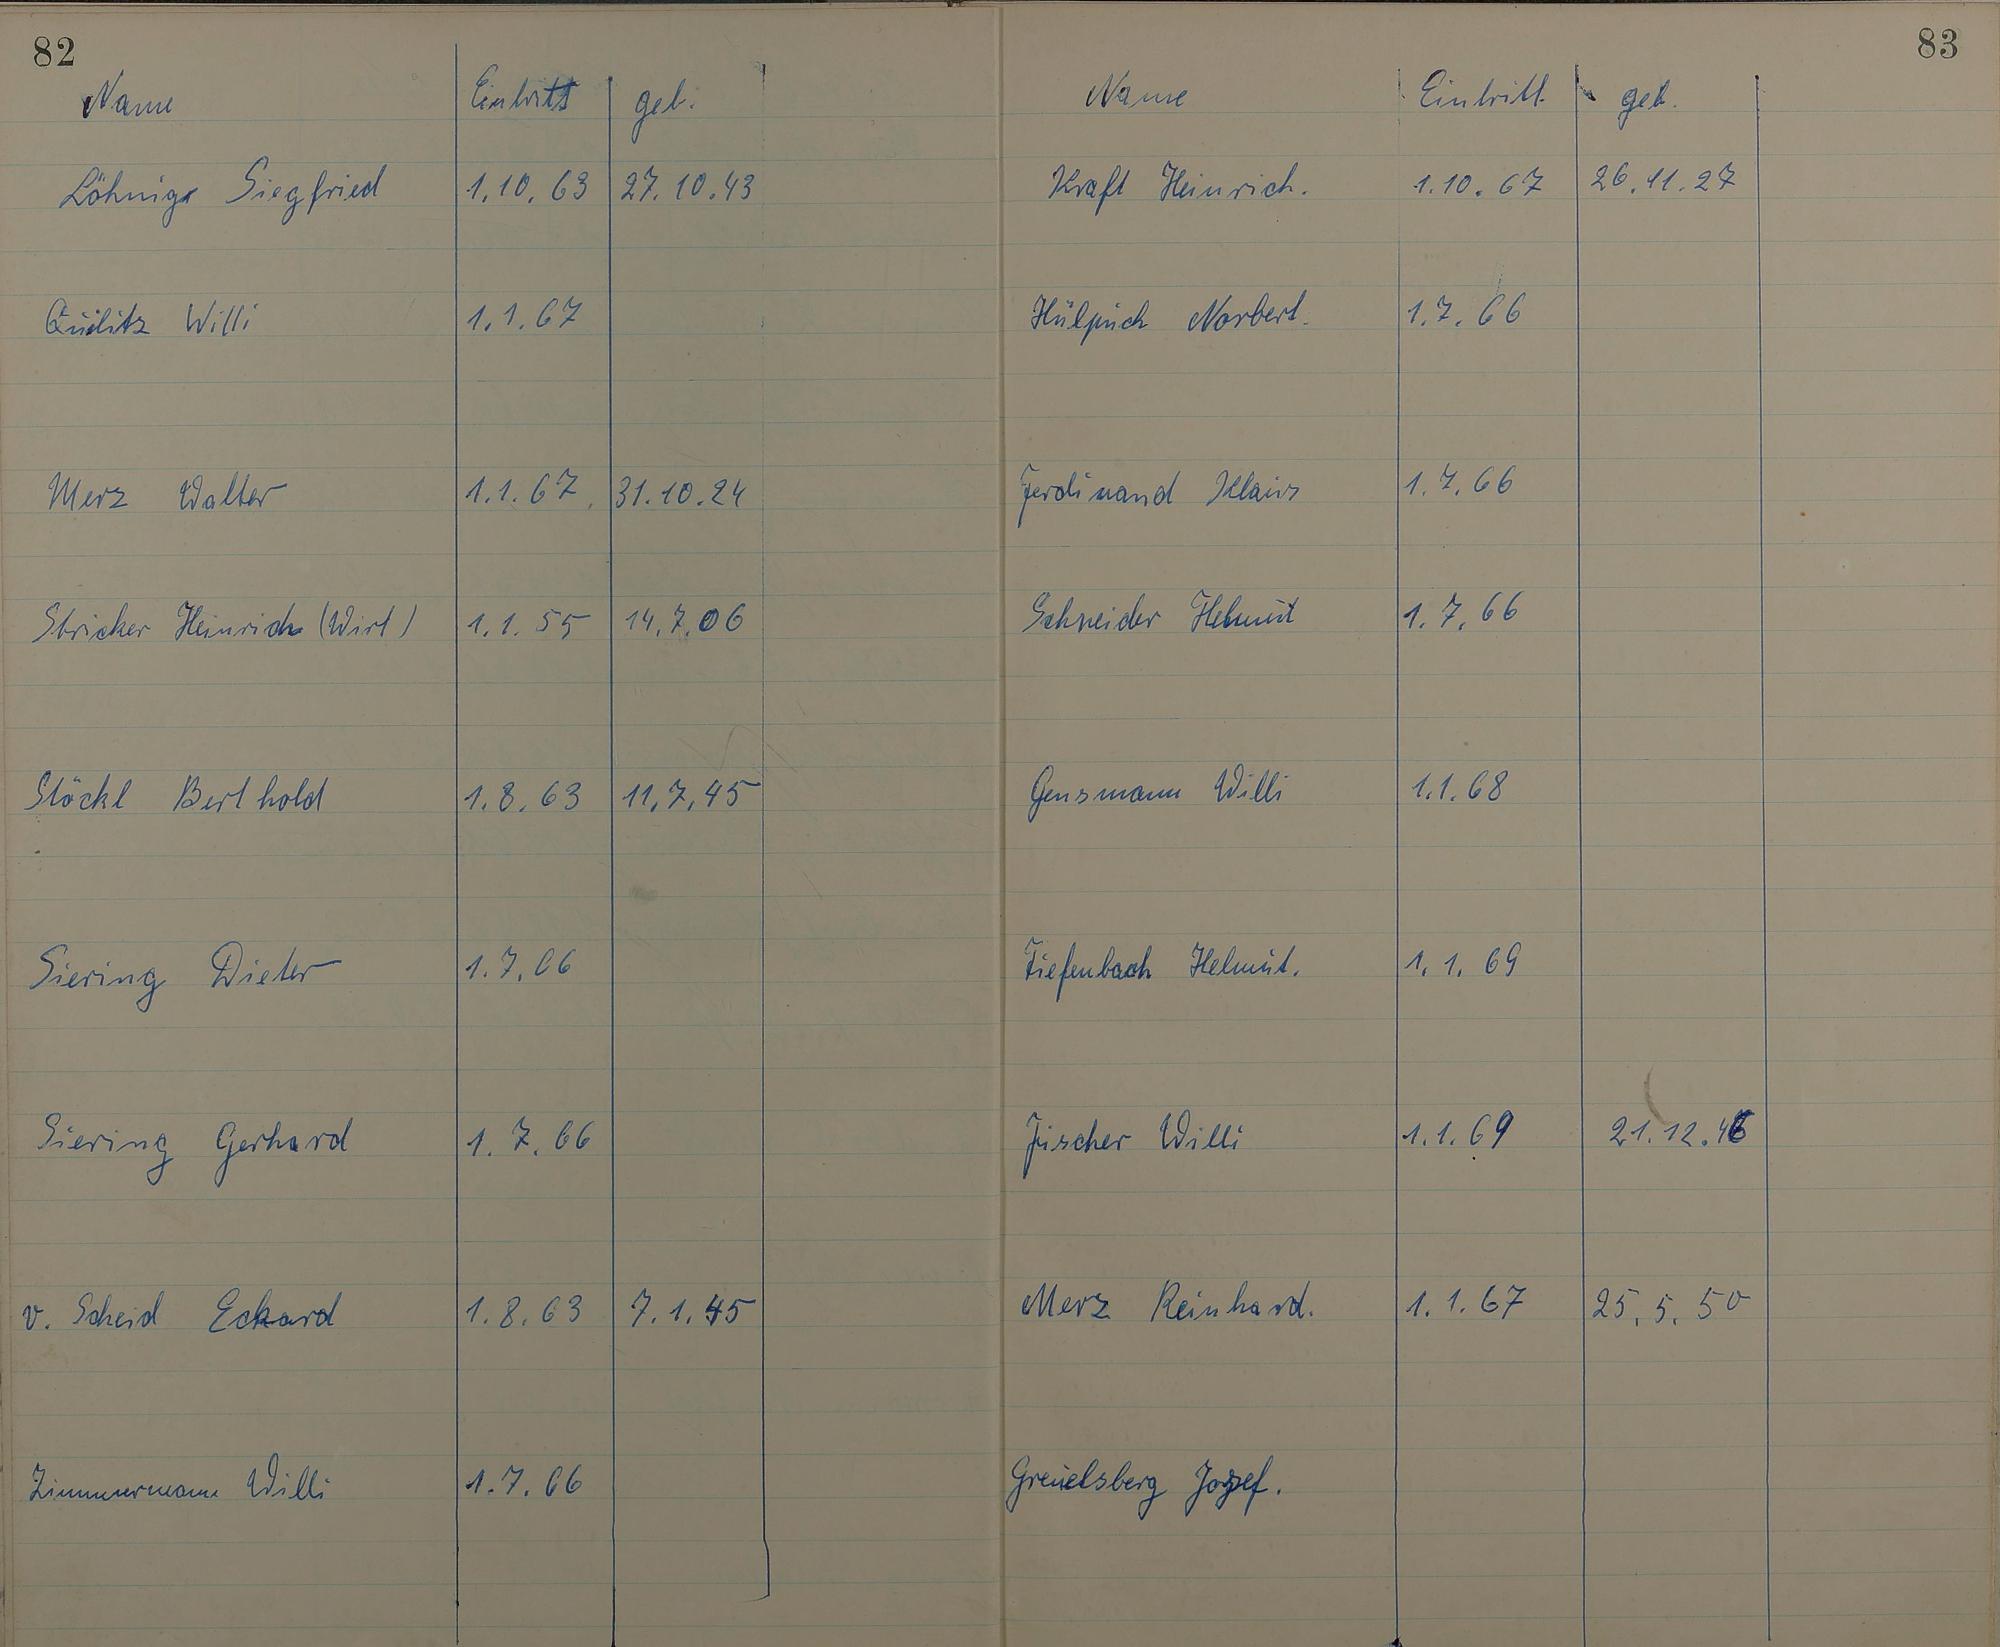 82
Name Eintritt geb.
Löhnigs Siegfried 1.10.63 27.10.43
Quilitz Willi 1.1.67
Merz Walter 1.1.67. 31.10.24
Stricker Heinrich (Wirt) 1.1.55 14.7.06
Stöckl Berthold 1.8.63 11.7.45
Siering Dieter 1.7.66
Siering Gerhard 1.7.66
v. Scheid Eckard 1.8.63 7.1.45
Zimmermann Willi 1.7.66
83
Name Eintritt geb.
Kraft Heinrich. 1.10.67 26.11.27
Hülpüch Norbert. 1.7.66
Ferdinand Klaus 1.7.66
Schneider Helmut 1.7.66
Gensmann Willi 1.1.68
Tiefenbach Helmut. 1.1.69
Fischer Willi 1.1.69 21.12.46
Merz Reinhard. 1.1.67 25.5.50
Greuelsberg Josef.